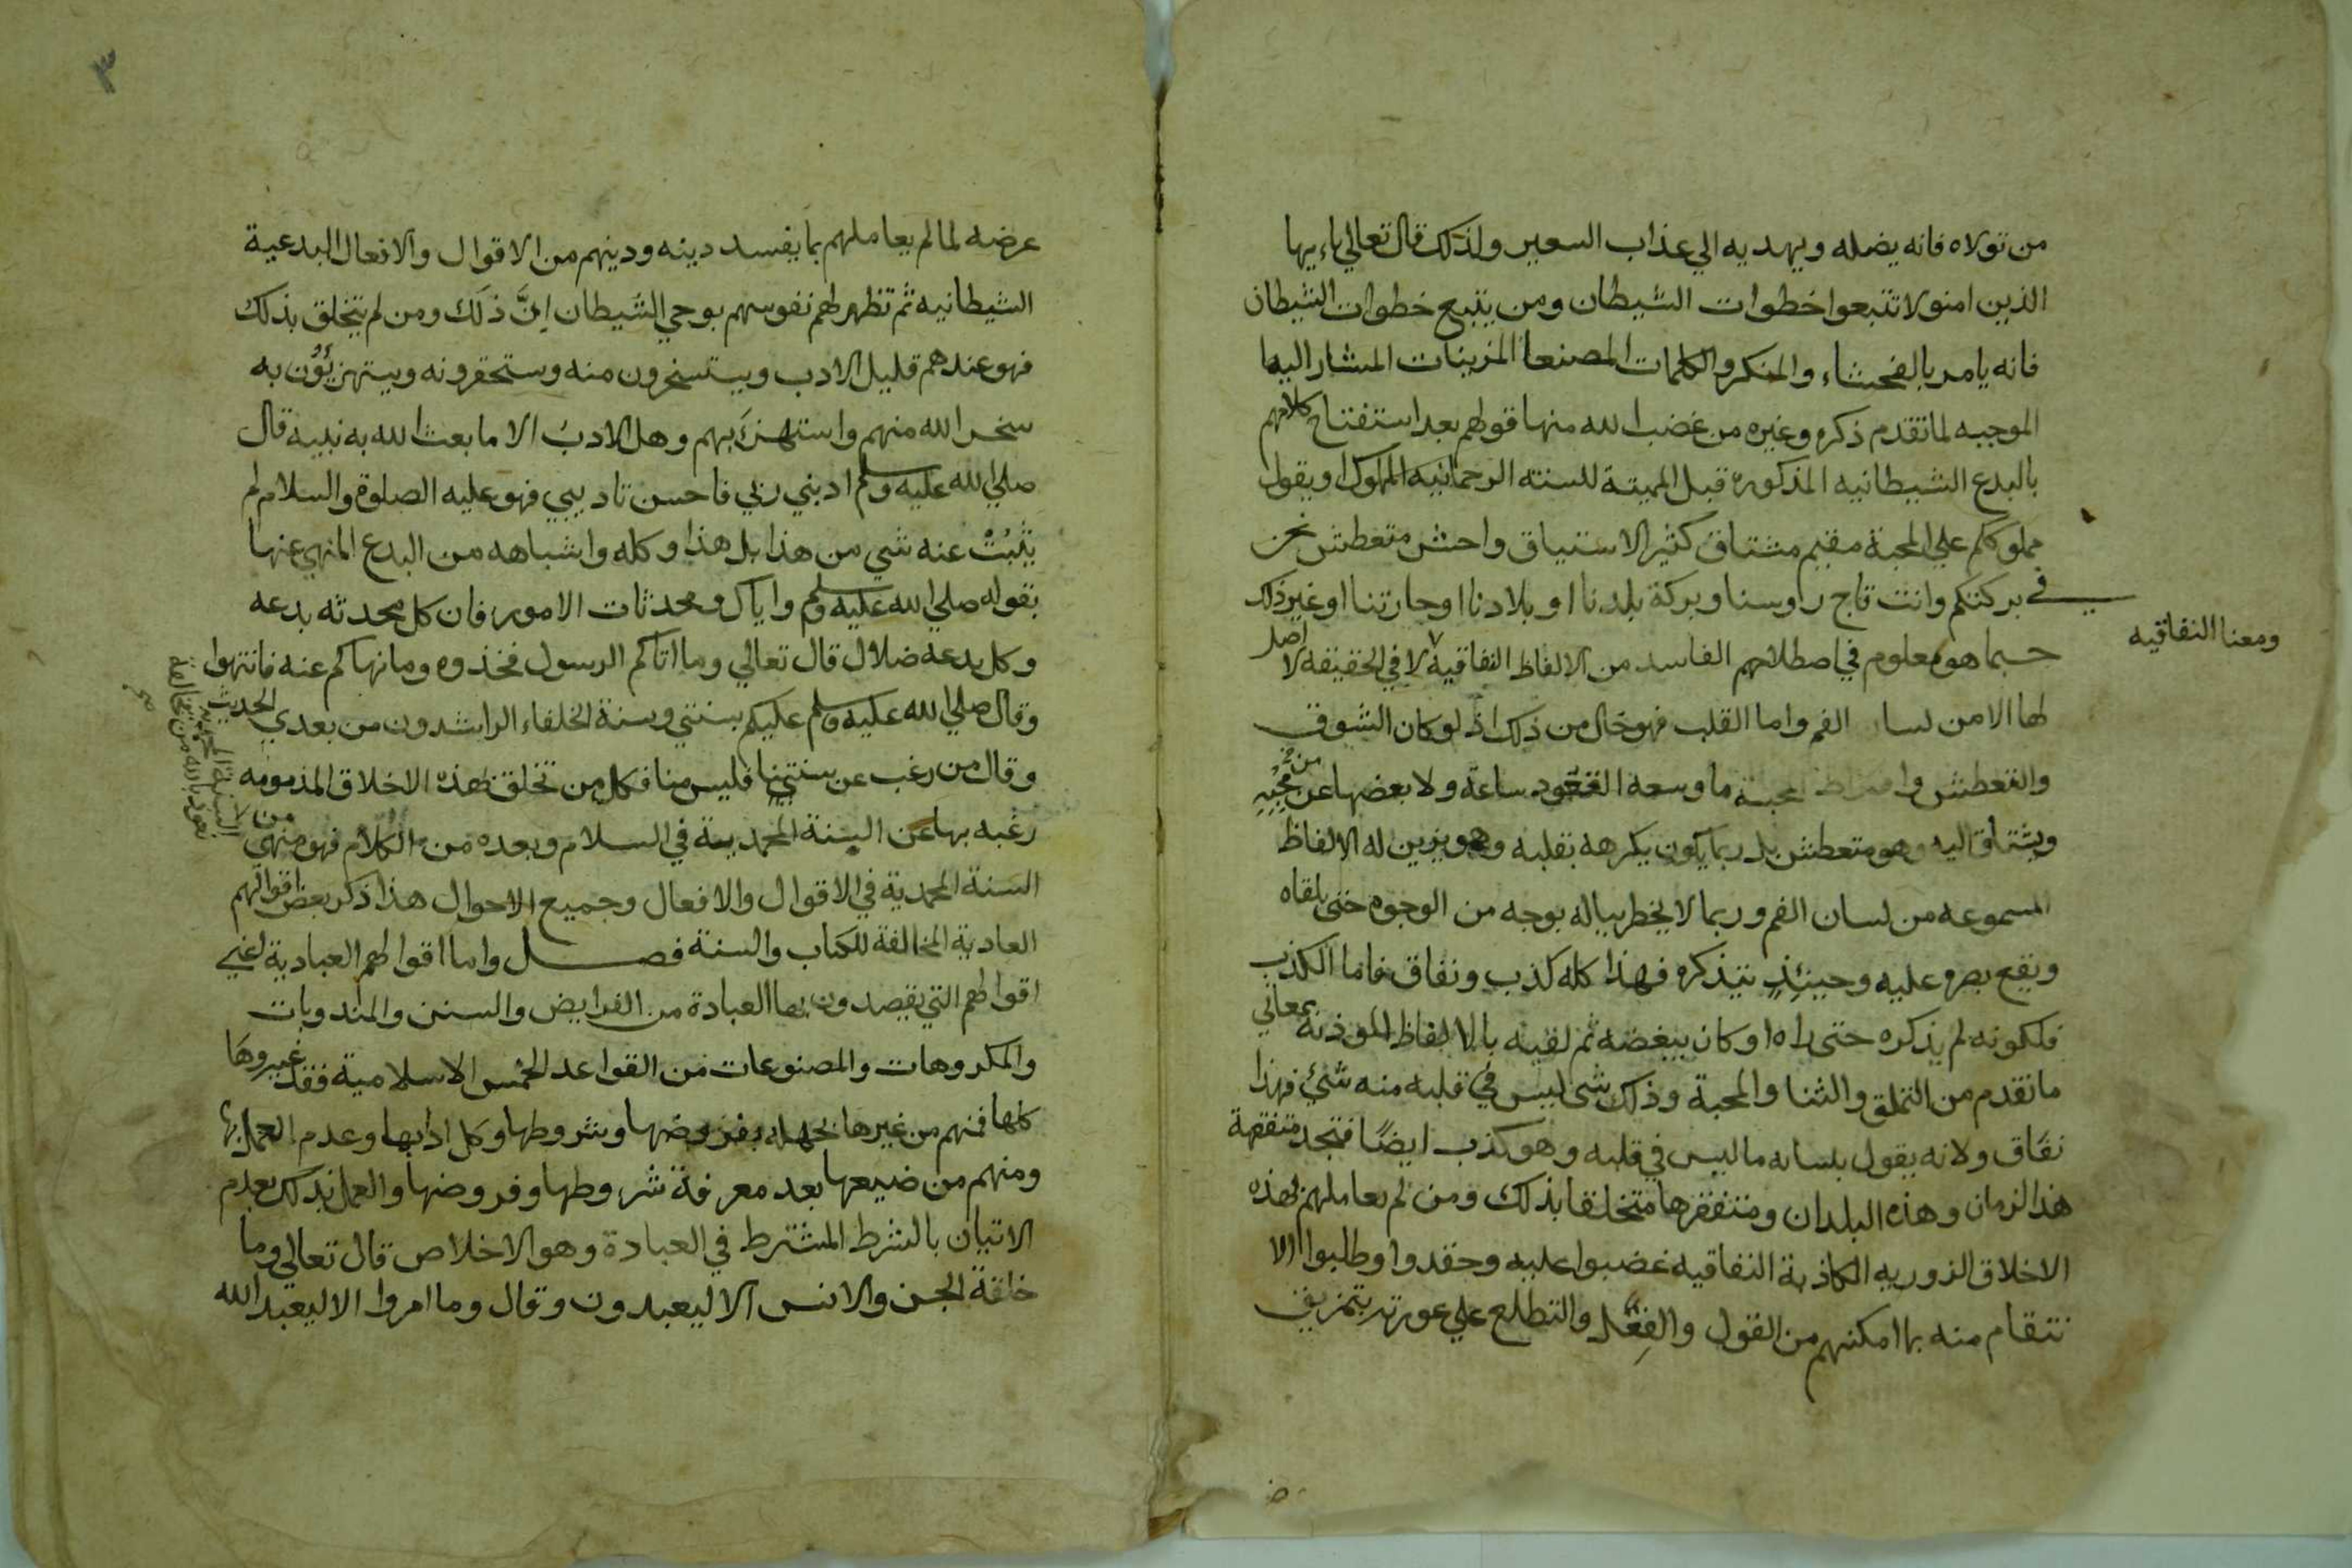 من تولاه فانه يضله ويهديه الي عذاب السعير ولذلك قال تعالي ياءيها
الذين امنو لا تتبعوا خطوات الشيطان ومن يتبع خطوات الشيطان
فانه يامر بالفحشاء والمنكر والكلمات المصنعا المزينات المشار اليها
الموجبه لما تقدم ذكره وغيره من غضب الله منها قولهم بعد استفتاح كلامهم
بالبدع الشيطانيه المذكوره قبل المميتة للسنته الرحمانيه المملوك او يقول
مملوككم علي المحبة مقيم مشتاق كثير الاشتياق واحش متعطش نحن
في بركتكم وانت تاج راوسنا وبركة بلدنا او بلادنا او حارتنا او غير ذلك
ومعنا النفاقيه
حسبما هو معلوم في اصطلاحهم الفاسد من الالفاظ النفاقية لا في الحقيقه لا اصل
لها الا من لسان الفم واما القلب فهو خال من ذلك اذ لو كان الشوق
والتعطش وافراط المحبة ما وسعه القعود ساعة ولا بعضها عن من محبيه
ويشتاق اليه وهو متعطش بل ربما يكون يكرهه بقلبه وهو يزين له الالفاظ
المسموعه من لسان الفم وربما لا يخطر بباله بوجه من الوجوه حتى يلقاه
ويقع بصره عليه وحينئذ يتذكره فهذا كله كذب ونفاق فاما الكذب
فلكونه لم يذكره حتى راه او كان يبغضه ثم لقيه بالالفاظ الموذنة بمعاني
ما تقدم من التملق والثنا والمحبة وذلك شى ليس في قلبه منه شئ فهذا
نفاق ولانه يقول بلسانه ما ليس في قلبه وهو كذب ايضًا فتجد متفقهة
هذا الزمان وهذه البلدان ومتفقرها متخلقا بذلك ومن لم يعاملهم بهذه
الاخلاق الزوريه الكاذبة النفاقيه غضبوا عليه وحقدوا وطلبوا الا
نتقام منه بما امكنهم من القول والفِعْل والتطلع علي عورته بتمزيق
٣
عرضه لما لم يعاملهم بما يفسد دينه ودينهم من الاقوال والافعال البدعية
الشيطانيه ثم تظهر لهم نفوسهم بوحي الشيطان اِنَّ ذلك ومن لم يتخلق بذلك
فهو عندهم قليل الادب ويستسخرون منه وستحقرونه ويستهزيؤُن به
سخر الله منهم واستهزَئ بهم وهل الادبُ الا ما بعث الله به نبيه قال
صلي الله عليه وسلم ادبني ربي فاحسن تاديبي فهو عليه الصلوة والسلام لم
يثبُتْ عنه شي من هذا بل هذا وكله واشباهه من البدع المنهي عنها
بقوله صلي الله عليه وسلم واياكم ومحدثات الامور فان كل محدثه بدعه
وكل بدعه ضلال قال تعالي وما اتاكم الرسول فخذوه وما نهاكم عنه فانتهوا
وقال صلي الله عليه وسلم عليكم بسنتي وسنة الخلفاء الراشدون من بعدي الحديث
وقال من رغب عن سنتي فليس منا فكل من تخلق بهذه الاخلاق المذمومه
رغبه بها عن السنة المحمدية في السلام وبعده من الكلام فهو منهي
السنة المحمدية في الاقوال والافعال وجميع الاحوال هذا ذكر بعض اقوالهم
العادية المخالفة للكتاب والسنة فصل واما اقوالهم العبادية اعني
اقوالهم التي يقصدون بها العبادة من الفرايض والسنن والمندوبات
والمكروهات والمصنوعات من القواعد الخمس الاسلامية فقد غيروهَا
كلها فمنهم من غيرها بجهله بفروضها وشروطها وكل ادابها وعدم العمل بها
ومنهم من ضيعها بعد معرفة شروطها وفروضها والعمل بذلك بعدم
الاتيان بالشرط المشترط في العبادة وهو الاخلاص قال تعالي وما
خلقة الجن والانس الا ليعبدون وقال وما امروا الا ليعبدا الله
نعوذ بالله من مخالفة